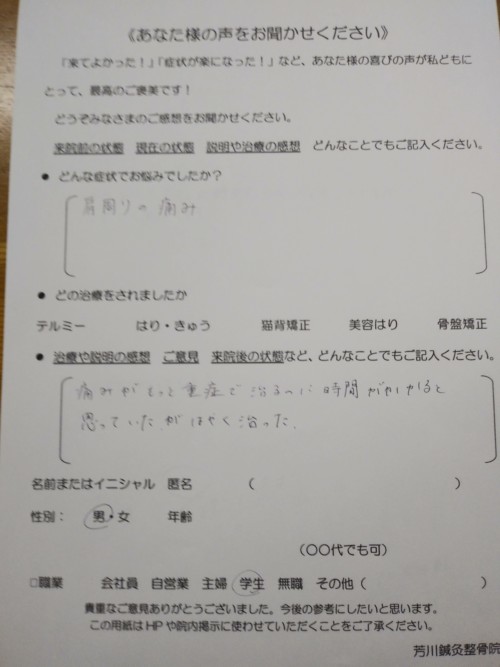 《あなた様の声をお聞かせください》
「来てよかった！」「症状が楽になった！」など、あなた様の喜びの声が私どもに
とって、最高のご褒美です！
どうぞみなさまのご感想をお聞かせください。
来院前の状態　現在の状態　説明や治療の感想　どんなことでもご記入ください。
● どんな症状でお悩みでしたか？
肩周りの痛み
● どの治療をされましたか
テルミー　はり・きゅう　猫背矯正　美容はり　骨盤矯正
● 治療や説明の感想　ご意見　来院後の状態など、どんなことでもご記入ください。
痛みがもっと重症で治るのに時間がかかると
思っていたがはやく治った.
名前またはイニシャル　匿名　（　）
性別：　男・女　年齢
（〇〇代でも可）
□職業　会社員　自営業　主婦　学生　無職　その他（　）
貴重なご意見ありがとうございました。今後の参考にしたいと思います。
この用紙はHPや院内掲示に使わせていただくことをご了承ください。
芳川鍼灸整骨院